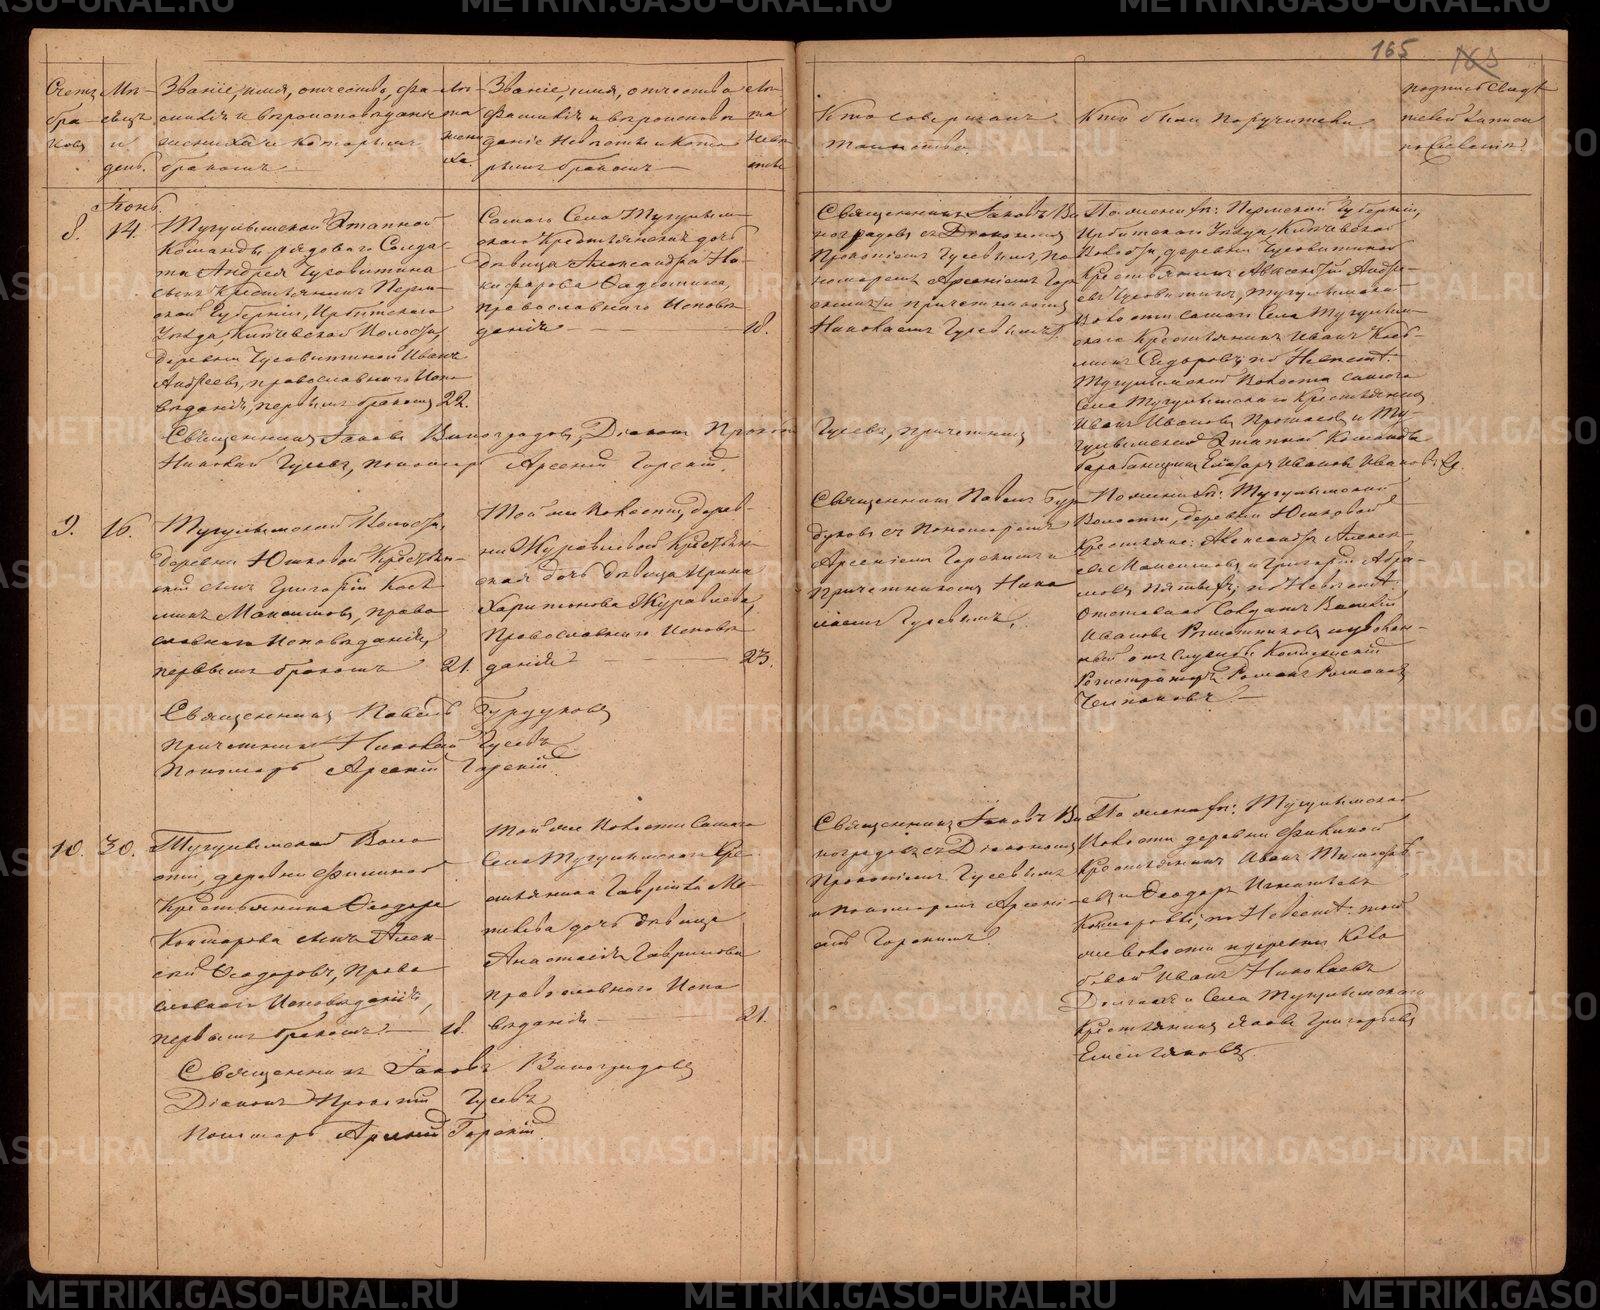 165
Счетъ бра-ковъ
Мѣ-сяцъ и день.
Званіе, имя, отчество, фа-
милія и вѣроисповѣданіе
жениха и которымъ
бракомъ
Лѣ-та жени-ха.
Званіе, имя, отчество
фамилія и вѣроисповѣ-
даніе невѣсты и кото-
рымъ бракомъ
Лѣ-та невѣ-сты
Кто совершалъ
таинство.
Кто были поручители.
подпись свидѣ-
телей записи
по желанію
Іюнь.
8. 14.
Тугулымской Этапной
Команды рядоваго Солда-
та Андрея Чусовитина
сынъ Крестьянинъ Перм-
ской Губерніи, Ирбитскаго
Уѣзда, Волости,
деревни Чусовитиной Иванъ
Андреевъ, православнаго испо-
вѣданія, первымъ бракомъ 22.
Самаго Села Тугулым-
скаго Крестьянская дочь
дѣвица Александра Ни-
кифорова
православнаго исповѣ-
данія 18.
Священникъ Іаковъ Ви-
ноградовъ съ Діакономъ
Прокопіемъ Гусевымъ, По-
номаремъ Арсеніемъ Гор-
скимъ и причетникомъ
Николаемъ Гусевымъ.
По женихѣ: Пермской Губерніи,
Ирбитскаго Уѣзда,
Волости, деревни Чусовитиной
Крестьянинъ Андре-
евъ Чусовитинъ, Тугулымской
Волости самаго Села Тугулым-
скаго Крестьянинъ Иванъ Козь-
минъ Сидоровъ; по Невѣст:
Тугулымской Волости самаго
Села Тугулымскаго Крестьянинъ
Иванъ Ивановъ и Ту-
гулымской Этапной Команды
барабанщикъ Ивановъ Ивановъ
Священникъ Іаковъ Виноградовъ, Діаконъ Прокопій Гусевъ, причетникъ
Николай Гусевъ, пономарь Арсеній Горскій.
9. 16.
Тугулымской Волости,
деревни Юшковой Крестьян-
скій сынъ Григорій Козь-
минъ Максимовъ, право-
славнаго исповѣданія,
первымъ бракомъ 21.
Той же Волости, дерев-
ни Журавлевой Крестьян-
ская дочь дѣвица Ирина
Харитонова Журавлева,
Православнаго исповѣ-
данія 23.
Священникъ Павелъ Бур-
дуковъ съ Пономаремъ
Арсеніемъ Горскимъ и
причетникомъ Нико-
лаемъ Гусевымъ.
По женихѣ: Тугулымской
Волости, деревни Юшковой
Крестьяне: Александръ Алексѣ-
евъ Максимовъ и Григорій Абра-
мовъ по Невѣстѣ:
Отставной Солдатъ Василій
Ивановъ Решетниковъ и уволен-
ный отъ службы Коллежскій
Регистраторъ Романъ Романовъ
Священникъ Павелъ Бурдуковъ
Причетникъ Николай Гусевъ
Пономарь Арсеній Горскій
10. 30.
Тугулымской Воло-
сти, деревни Фикиной
Крестьянина Ѳеодора
Комарова сынъ Алек-
сѣй Ѳеодоровъ, Право-
славнаго исповѣданія,
первымъ бракомъ 18.
Той же Волости Самаго
Села Тугулымскаго Кре-
стьянина Гавріила Ма-
твѣева дочь дѣвица
Анастасія Гаврилова
православнаго испо-
вѣданія 21.
Священникъ Іаковъ Ви-
ноградовъ съ Діакономъ
Прокопіемъ Гусевымъ
и пономаремъ Арсені-
емъ Горскимъ.
По женихѣ: Тугулымской
Волости деревни Фикиной
Крестьянинъ Иванъ Тимофѣ-
евъ и Ѳеодоръ Игнатьевъ
Комаровы; по Невѣст: той
же волости и деревни
Иванъ Николаевъ
и Села Тугулымскаго
Крестьянинъ Яковъ Григорьевъ
Емельяновъ.
Священникъ Іаковъ Виноградовъ
Діаконъ Прокопій Гусевъ
Пономарь Арсеній Горскій.
METRIKI.GASO-URAL.RU